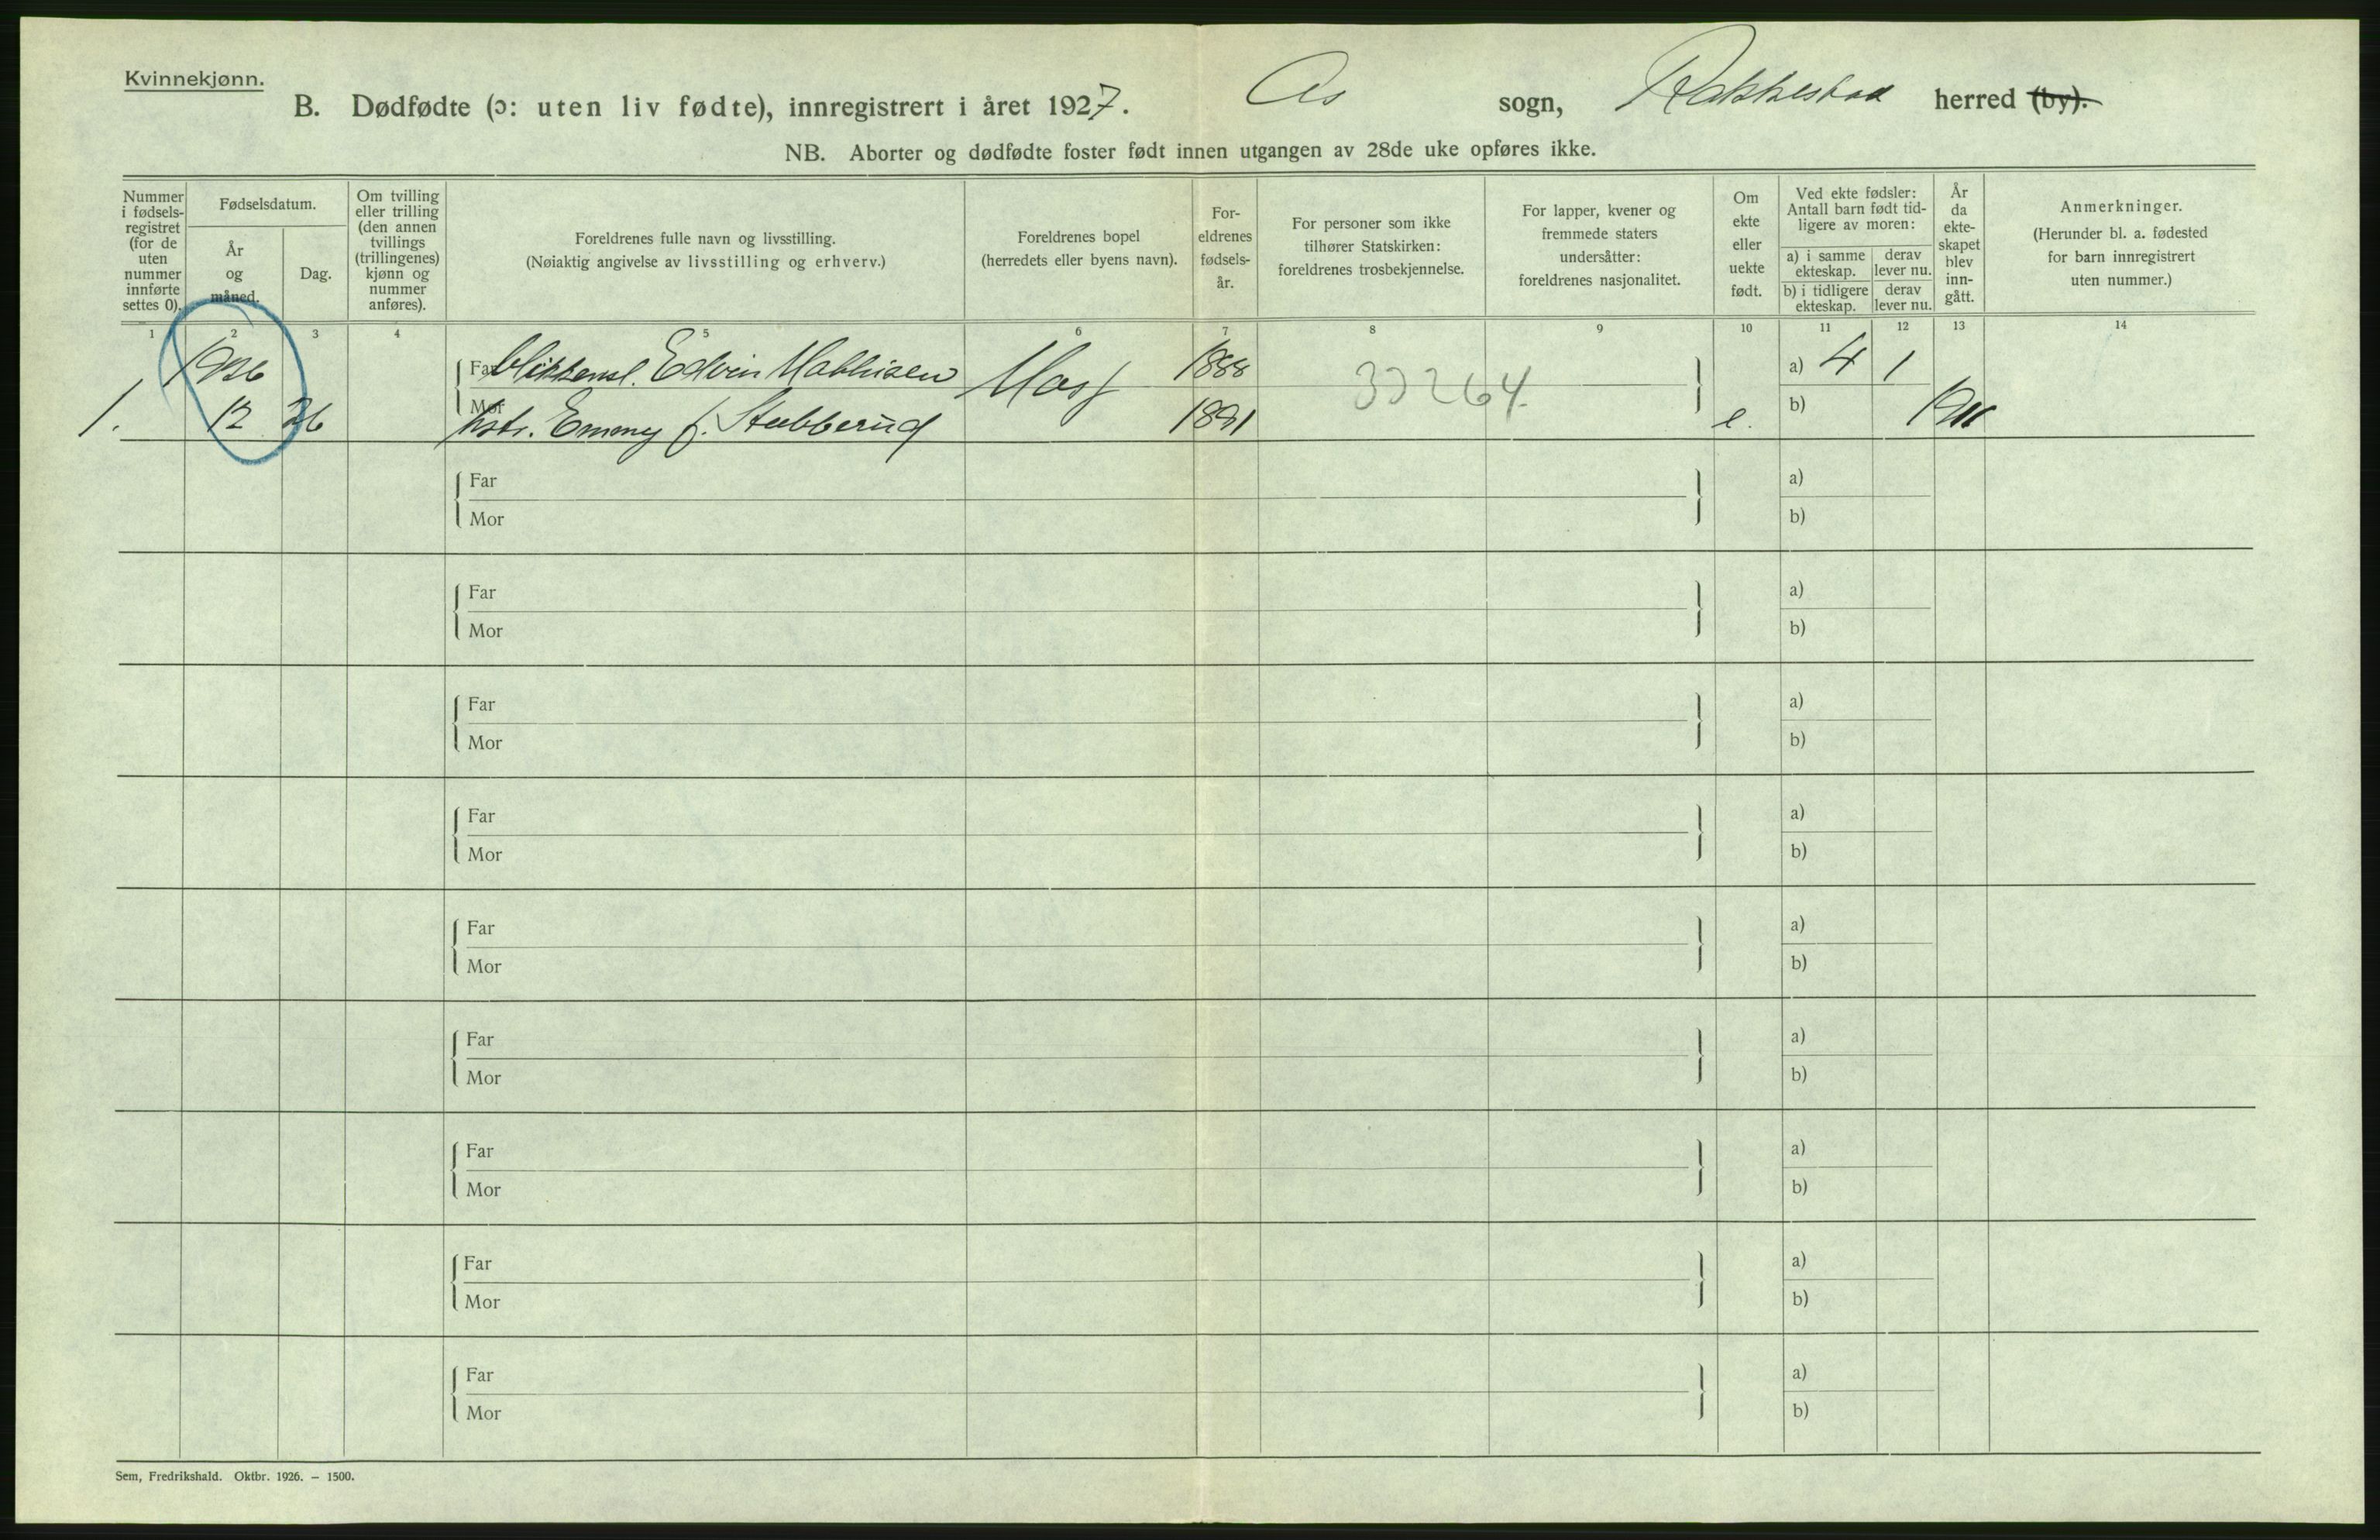 Kvinnekjønn.
B. Dødfødte (ɔ: uten liv fødte), innregistrert i året 1927. Ås sogn, Rakkestad herred (by).
NB. Aborter og dødfødte foster født innen utgangen av 28de uke opføres ikke.
Nummer i fødsels-registret (for de uten nummer innførte settes 0).
Fødselsdatum.
År og måned.
Dag.
Om tvilling eller trilling (den annen tvillings (trillingenes) kjønn og nummer anføres).
Foreldrenes fulle navn og livsstilling.
(Nøiaktig angivelse av livsstilling og erhverv.)
Foreldrenes bopel
(herredets eller byens navn).
For-eldrenes fødsels-år.
For personer som ikke tilhører Statskirken: foreldrenes trosbekjennelse.
For lapper, kvener og fremmede staters undersåtter: foreldrenes nasjonalitet.
Om ekte eller uekte født.
Ved ekte fødsler: Antall barn født tid-ligere av moren:
a) i samme ekteskap.
derav lever nu.
b) i tidligere ekteskap.
derav lever nu.
År da ekte-skapet blev inn-gått.
Anmerkninger.
(Herunder bl. a. fødested for barn innregistrert uten nummer.)
1 2 3 4 5 6 7 8 9 10 11 12 13 14
1926 Far Edvin Mathisen 1888 a) 4 1
1. 12 26 Mor Emmy f. Stubberud 1891 33264. e. b) 1911
Far a)
Mor b)
Far a)
Mor b)
Far a)
Mor b)
Far a)
Mor b)
Far a)
Mor b)
Far a)
Mor b)
Far a)
Mor b)
Far a)
Mor b)
Far a)
Mor b)
Sem, Fredrikshald. Oktbr. 1926. – 1500.